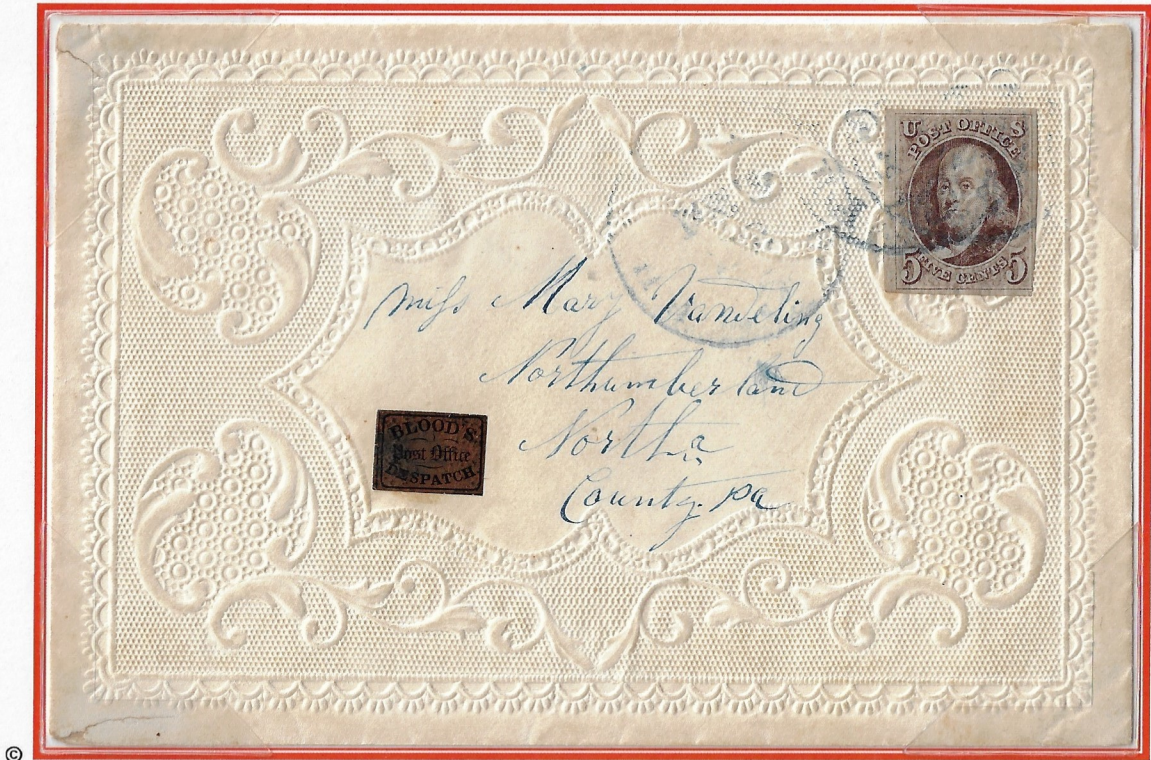 U S
POST OFFICE
FIVE CENTS
5 5
Miss Mary
Northumberland
North.a
County. Pa
BLOOD'S
Post Office
DESPATCH
©